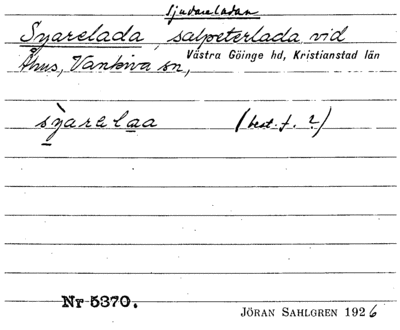 Sjudareladan
Syarelada, salpeterlada vid
Åhus, Vankiva sn, Västra Göinge hd, Kristianstad län
syarelaa (best. f. ?)
Nr 5370.
JÖRAN SAHLGREN 1926